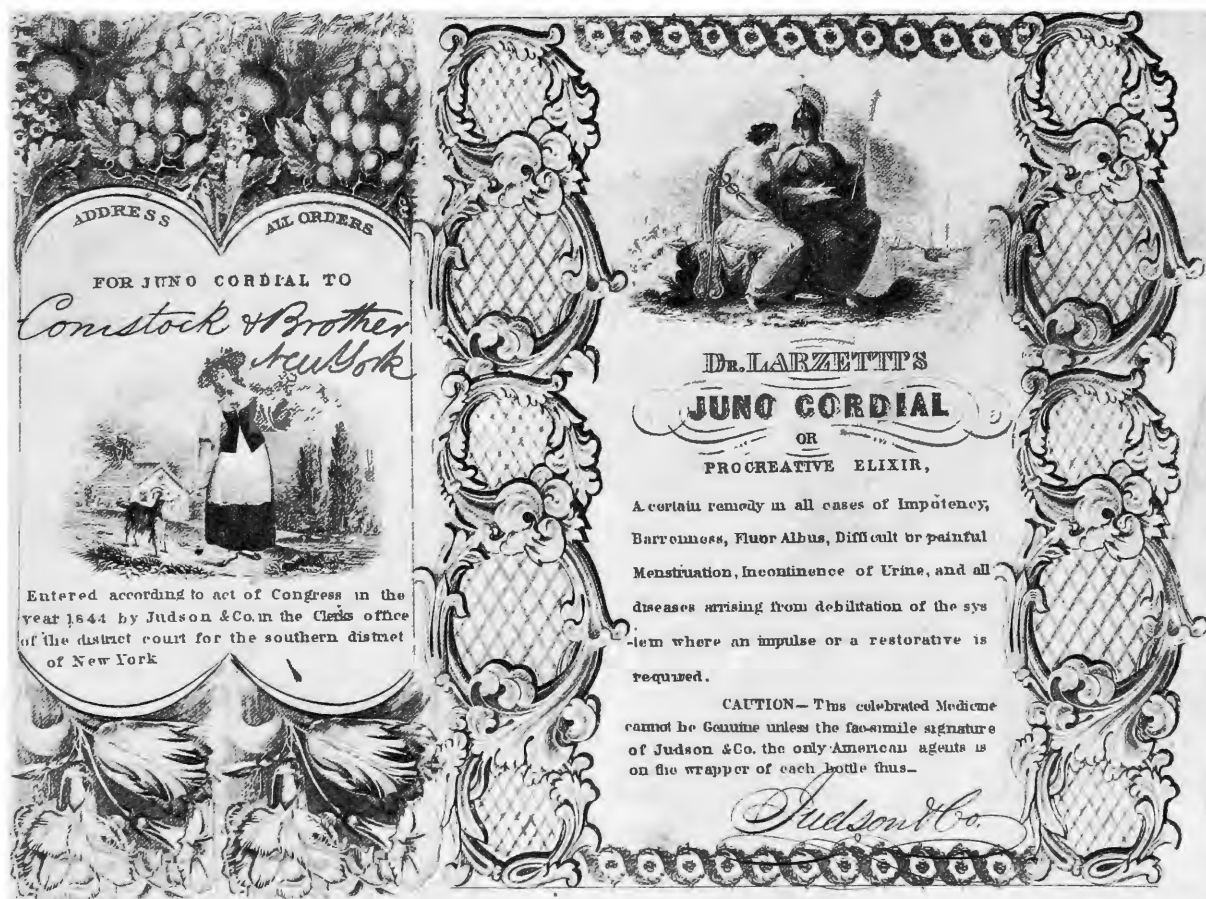 ADDRESS ALL ORDERS
FOR JUNO CORDIAL TO
Comstock & Brother
New York
Entered according to act of Congress in the
year 1844 by Judson &Co. in the Clerks office
of the district court for the southern district
of New York
DR. LARZETTI'S
JUNO CORDIAL
OR
PROCREATIVE ELIXIR,
A certain remedy in all cases of Impotency,
Barronness, Fluor Albus, Difficult or painful
Menstruation, Incontinence of Urine, and all
diseases arrising from debilitation of the sys
-tem where an impulse or a restorative is
required.
CAUTION— This celebrated Medicine
cannot be Genuine unless the fac-simile signature
of Judson &Co. the only American agents is
on the wrapper of each bottle thus—
Judson & Co.